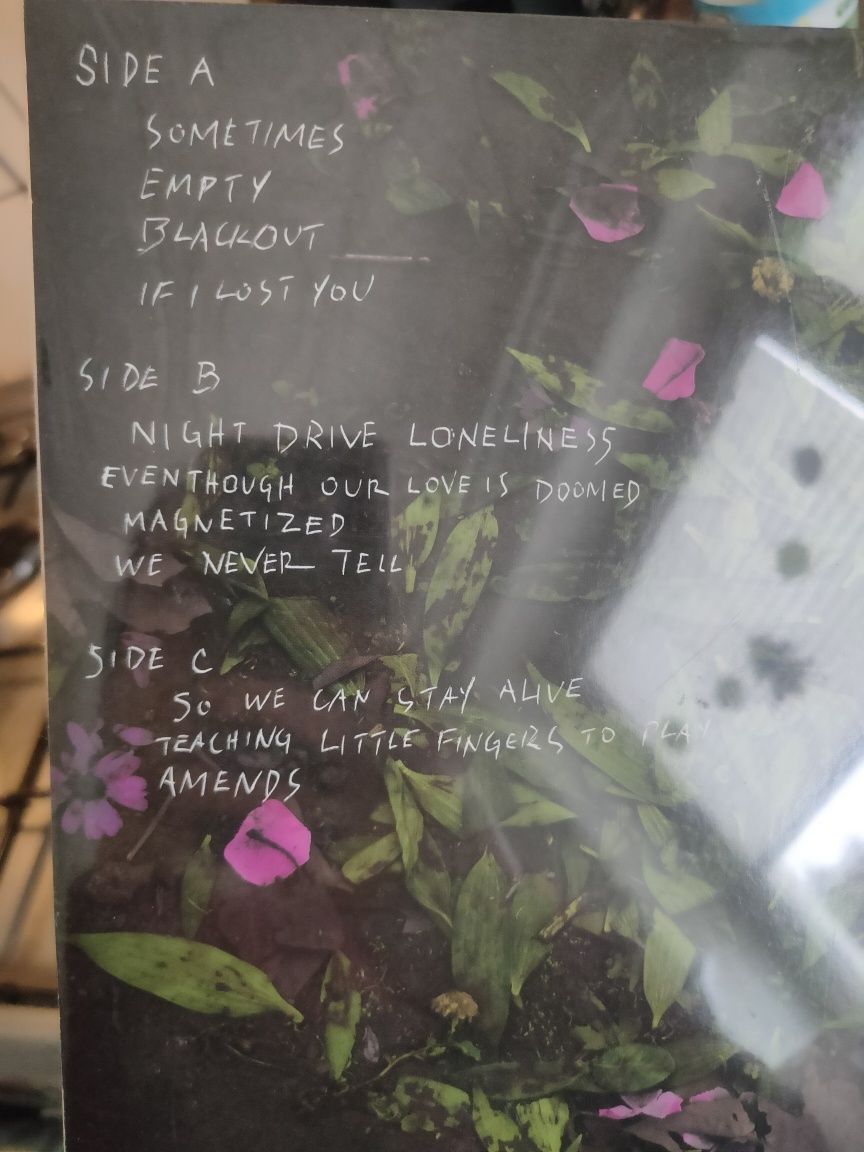 SIDE A
SOMETIMES
EMPTY
BLACKOUT
IF I LOST YOU
SIDE B
NIGHT DRIVE LONELINESS
EVENTHOUGH OUR LOVE IS DOOMED
MAGNETIZED
WE NEVER TELL
SIDE C
SO WE CAN STAY ALIVE
TEACHING LITTLE FINGERS TO PLAY
AMENDS